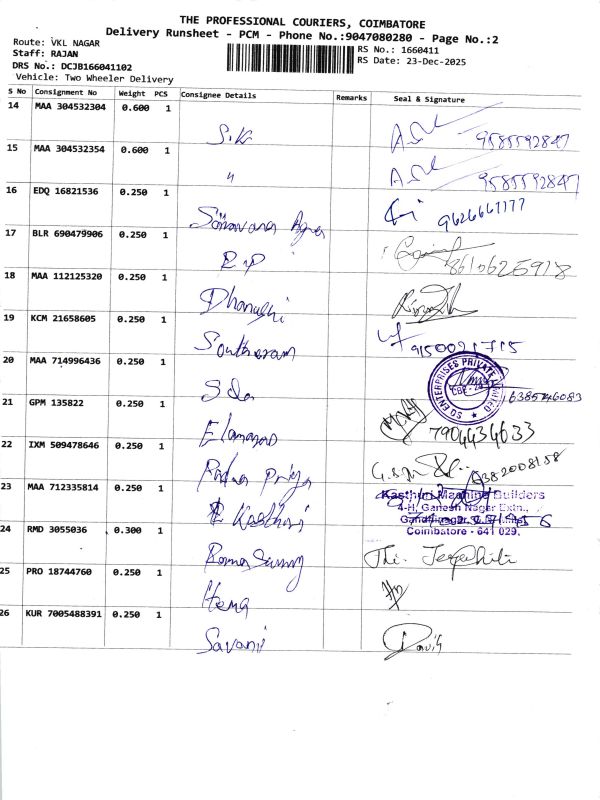 THE PROFESSIONAL COURIERS, COIMBATORE
Delivery Runsheet - PCM - Phone No.:9047080280 - Page No.:2
Route: VKL NAGAR
Staff: RAJAN
DRS No.: DCJB166041102
Vehicle: Two Wheeler Delivery
RS No.: 1660411
RS Date: 23-Dec-2025
S No Consignment No Weight PCS Consignee Details Remarks Seal & Signature
14 MAA 304532304 0.600 1
S.K 9585592847
15 MAA 304532354 0.600 1
" 9585592847
16 EDQ 16821536 0.250 1
9626667777
17 BLR 690479906 0.250 1
R P 8610625918
18 MAA 112125320 0.250 1
19 KCM 21658605 0.250 1
9150021715
20 MAA 714996436 0.250 1
SG ENTERPRISES PRIVATE LIMITED
CBE
6385746083
21 GPM 135822 0.250 1
7904434633
22 IXM 509478646 0.250 1
Radha Priya
23 MAA 712335814 0.250 1
Kasthuri
Kasthuri Machine Builders
4-H, Ganesh Nagar Extn.,
Coimbatore - 641 029.
24 RMD 3055036 0.300 1
25 PRO 18744760 0.250 1
Hema
26 KUR 7005488391 0.250 1